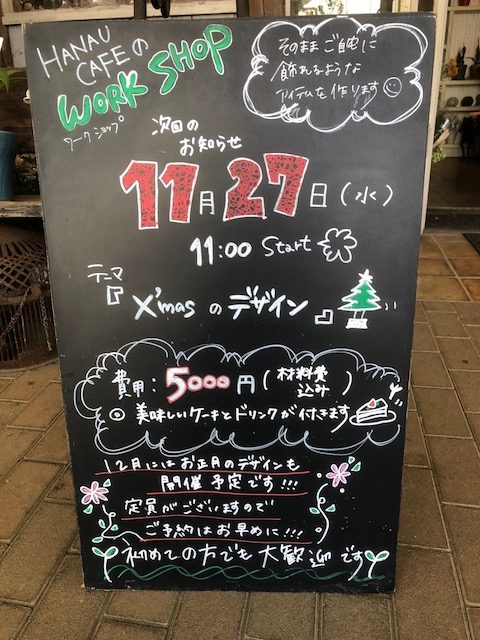 HANAU
CAFEの
WORK SHOP
ワークショップ
そのままご自宅に
飾れるような
アイテムを作ります
次回の
お知らせ
11月27日(水)
11:00 Start
テーマ
『X'masのデザイン』
費用:5000円(材料費込み)
◎ 美味しいケーキとドリンクが付きます
12月にはお正月のデザインも
開催予定です!!!
定員がございますので
ご予約はお早めに!!!
初めての方でも大歓迎です